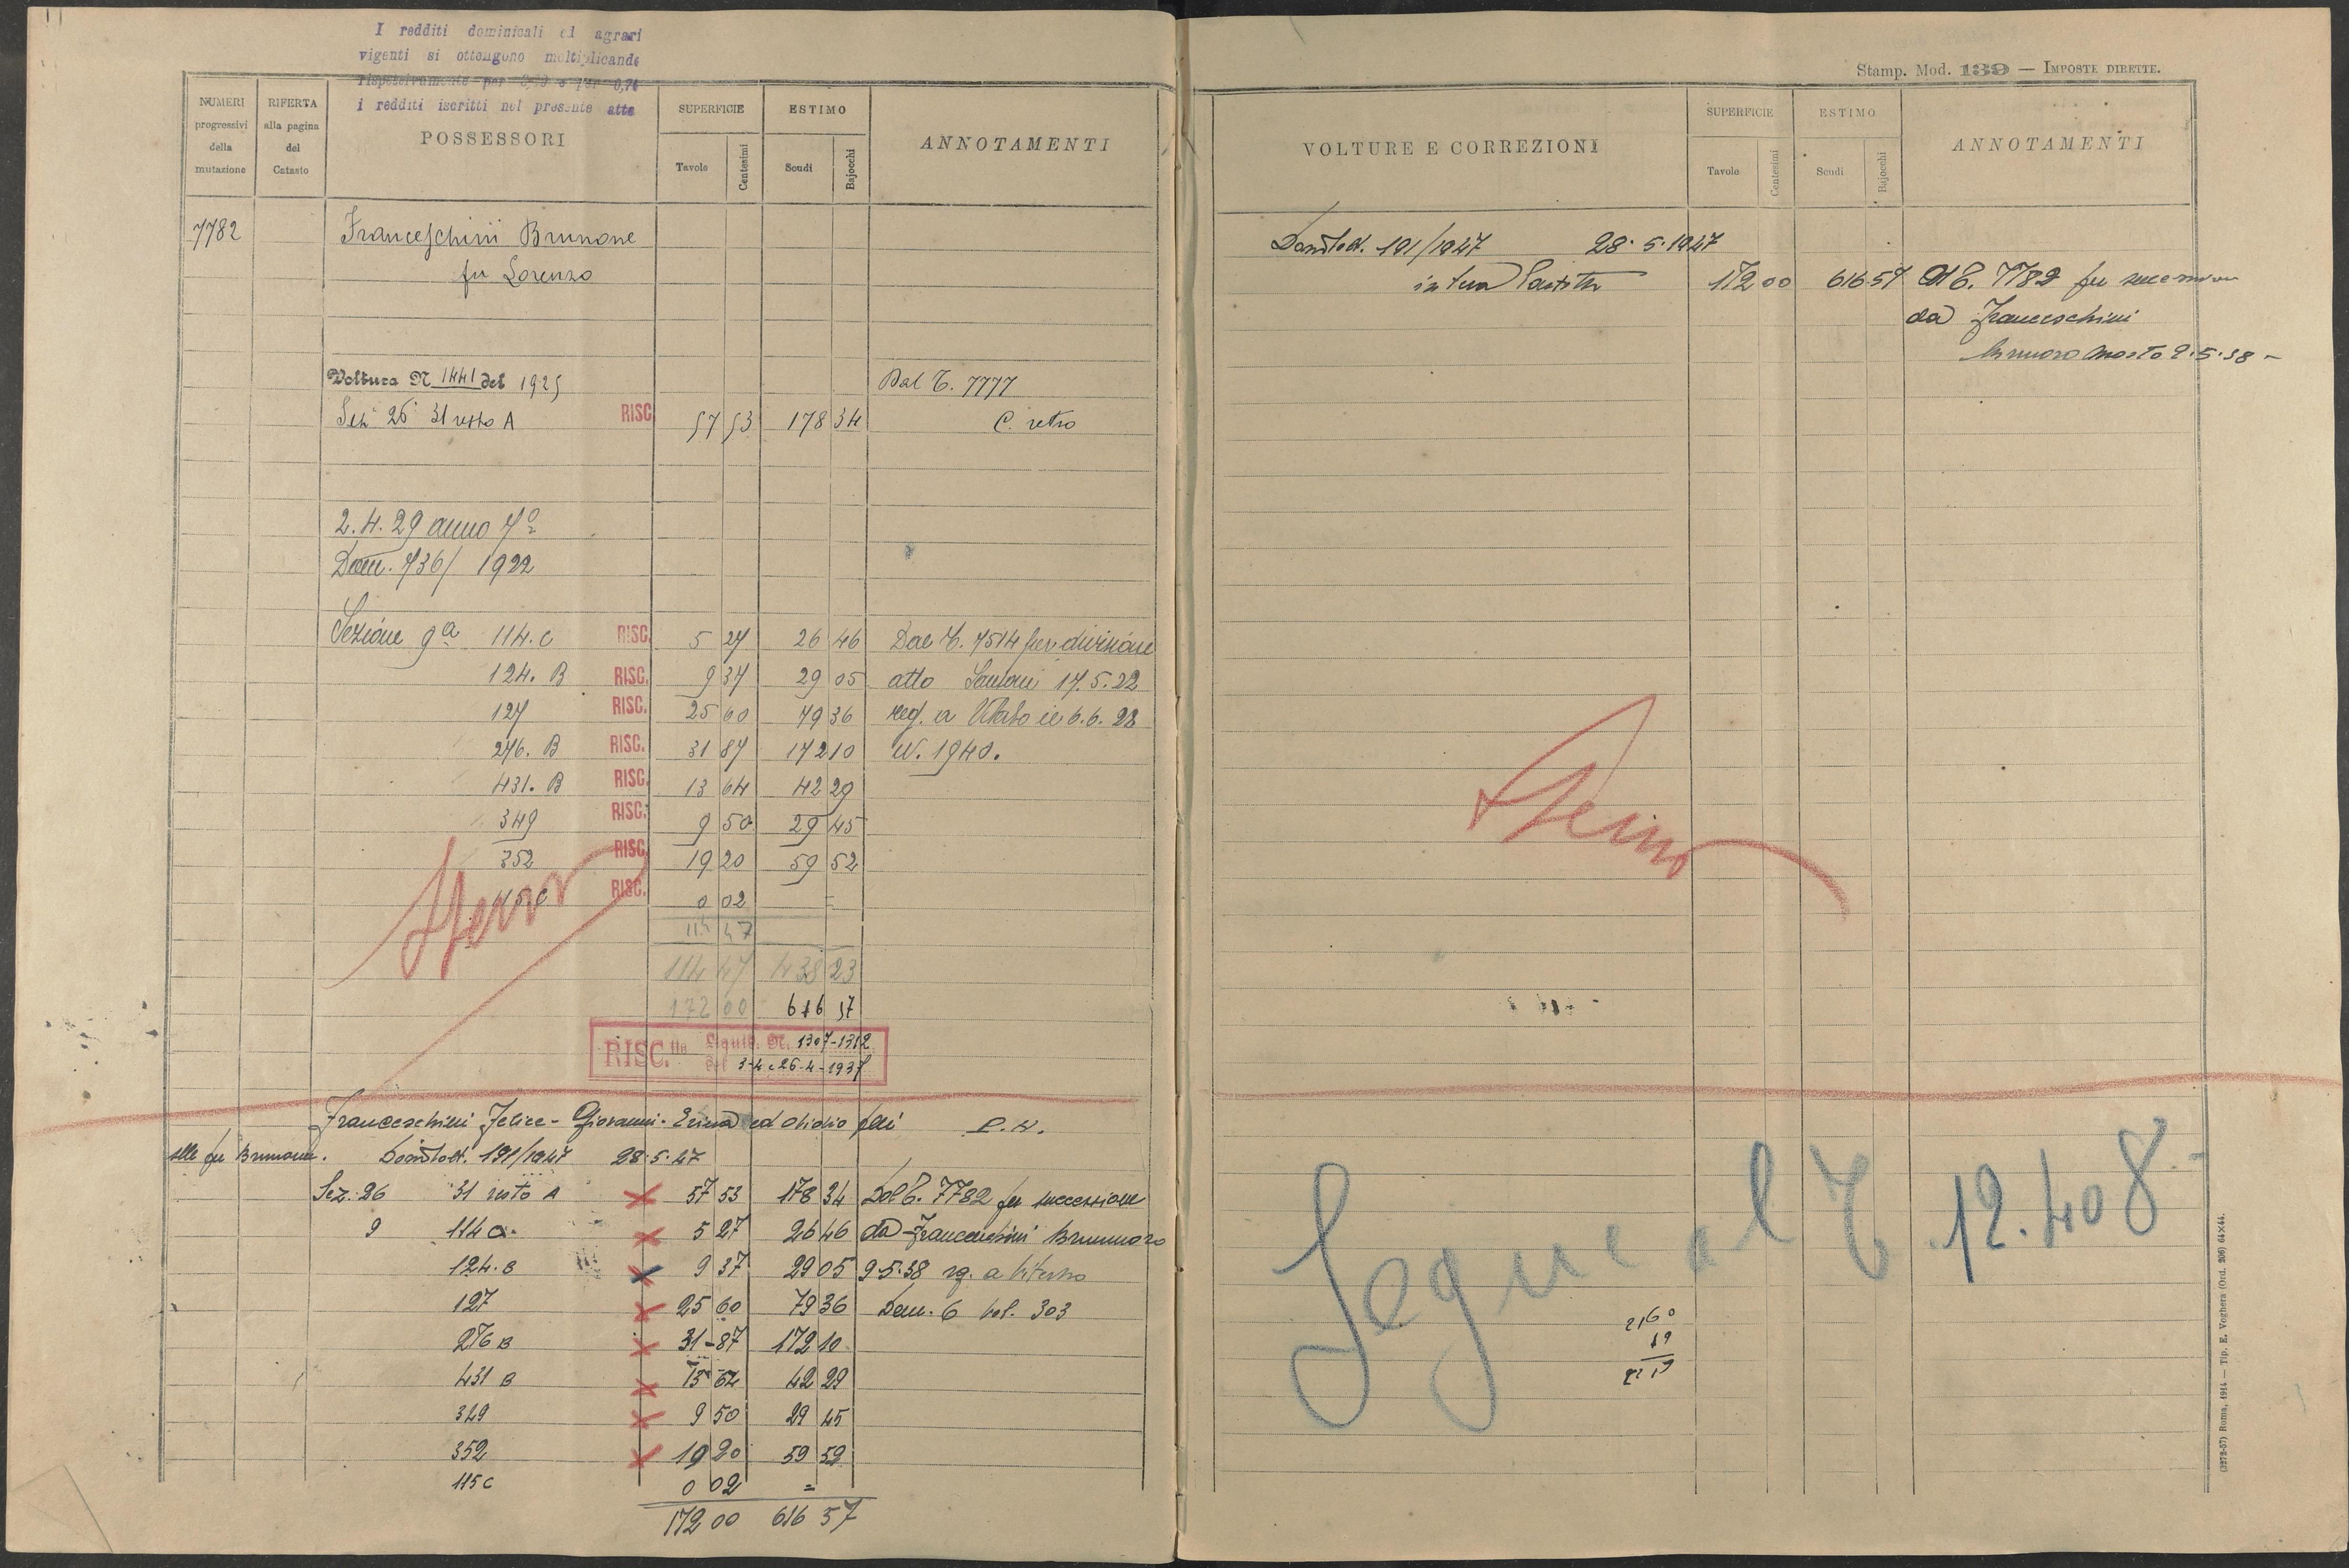 I redditi dominicali ed agrari
vigenti si ottengono moltiplicando
rispettivamente per e per 0,74
i redditi iscritti nel presente atto
NUMERI progressivi della mutazione
RIFERTA alla pagina del Catasto
POSSESSORI
SUPERFICIE
Tavole
Centesimi
ESTIMO
Scudi
Bajocchi
ANNOTAMENTI
7782
Franceschini Brunone
fu Lorenzo
Voltura N 1441 del 1925
Dal T. 7777
Sez 26 31 resto A RISC. 57 53 178 34 C. retro
2.4.29 anno 7º
Dom. 736/ 1922
Sezione 9ª 114.c RISC. 5 27 26 46 Dal T. 7514 per divisione
124. B RISC. 9 37 29 05 atto 17.5.22
127 RISC. 25 60 79 36 reg. a 6.6.
276. B RISC. 31 87 172 10 N. 1940.
431. B RISC. 13 64 42 29
349 RISC. 9 50 29 45
352 RISC. 19 20 59 52
RISC. 0 02 =
114 47
114 47 438 23
172 00 616 57
RISC. lla Liquid. N. 1307-1312
del 3-4 e 26-4-1937
Franceschini Felice - Giovanni - Erina ed Olidio
P. N.
fu Brunone. 191/1947 28.5.47
Sez. 26 31 resto A 57 53 178 34 Dal T. 7782 per successione
9 114 c. 5 27 26 46 da Franceschini Brunnoro
124. B 9 37 29 05 9 5.38 rg. a Viterbo
127 25 60 79 36 Den. 6 vol. 303
276 B 31-87 172 10
431 B 13 64 42 29
349 9 50 29 45
352 19 20 59 52
115 c 0 02 =
172 00 616 57
Stamp. Mod. 139 — IMPOSTE DIRETTE.
VOLTURE E CORREZIONI
SUPERFICIE
Tavole
Centesimi
ESTIMO
Scudi
Bajocchi
ANNOTAMENTI
191/1947 28.5.1947
in sua Partita 172 00 616 57 Al T. 7782 per successione
da Franceschini
Brunoro morto 9.5.38 -
Segue al T 12.408
2160
19
(3272-57) Roma, 1914 — Tip. E. Voghera (Ord. 206) 64×44.